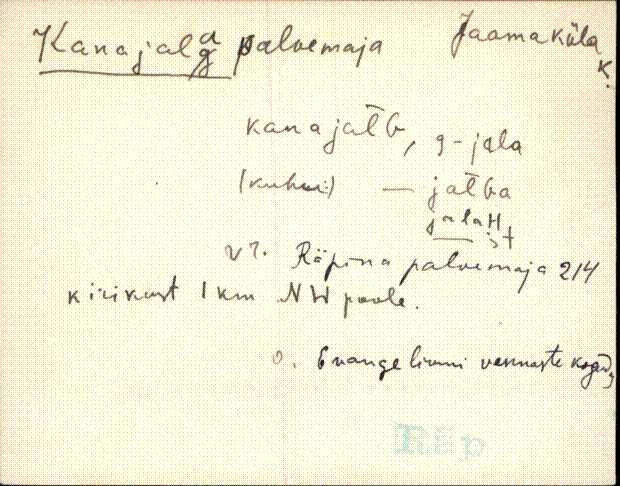 Kanajala palvemaja Jaamaküla
k.
kanajal̄G, g-jala
(kuhu:) — jal̄ba
jalaH
st
vt. Räpina palvemaja 214
kirikust 1 km NW poole.
o. Evangeeliumi vennaste
Räp